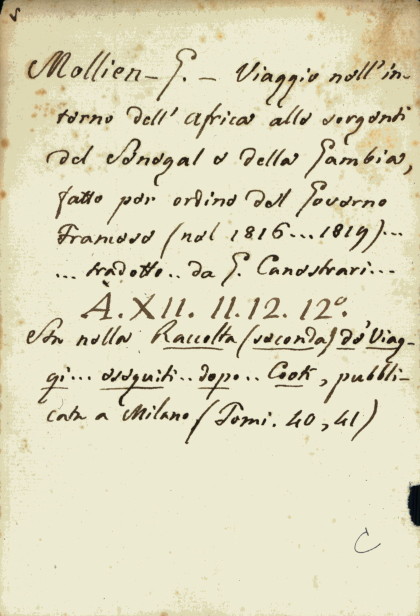 Mollien - G. - Viaggio nell' in-
terno dell' Africa alle sorgenti
del Senegal e della Gambia,
fatto per ordine del Governo
Francese (nel 1816...1819)...
... tradotto.. da G. Canestrari...
A. XII. 11. 12. 12°.
Sta nella Raccolta (seconda) de' Viag-
gi... eseguiti.. dopo.. Cook, pubbli-
cata a Milano (Tomi. 40, 41)
C